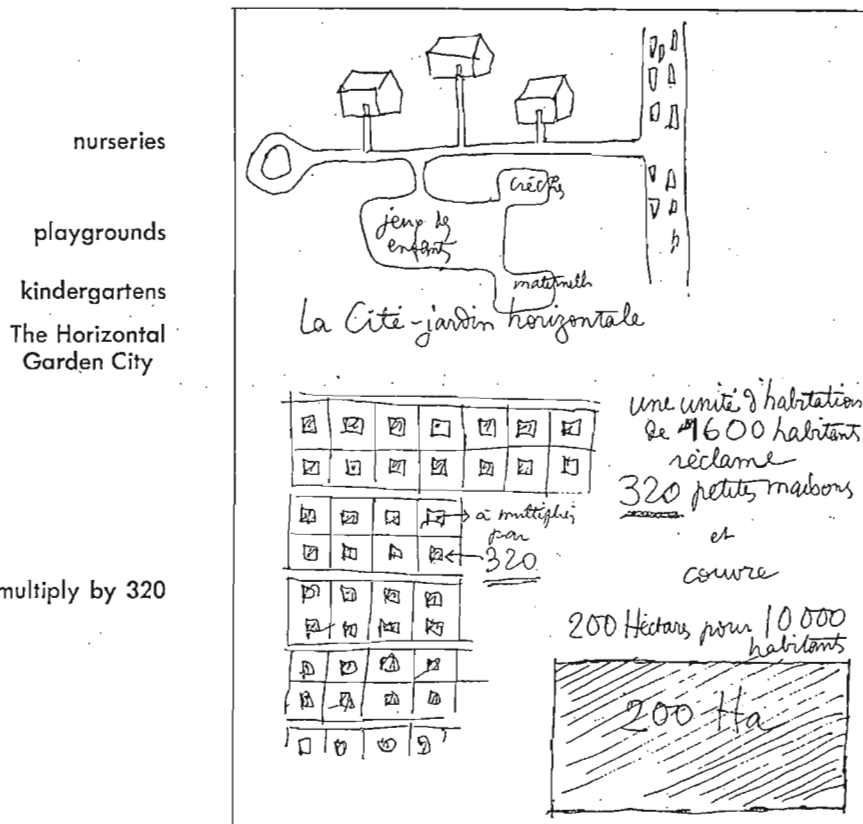 nurseries
playgrounds
kindergartens
The Horizontal
Garden City
multiply by 320
crèches
jeux des
enfants
maternelle
La Cité-jardin horizontale
une unité d'habitation
de 1600 habitants
réclame
320 petites maisons
et
couvre
200 Hectares pour 10 000
habitants
200 Ha
à multiplier
par
320